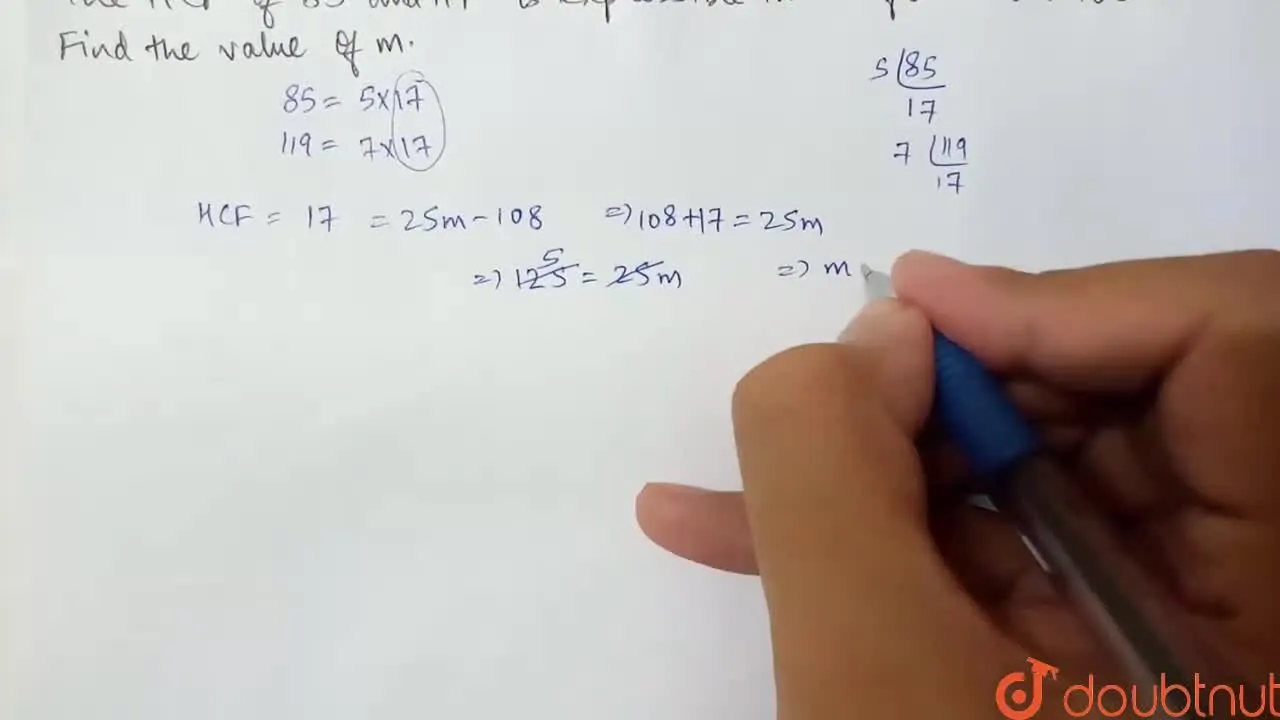 Find the value of m.
85 = 5×17
119 = 7×17
5 85
17
7 119
17
HCF = 17 = 25m - 108 => 108+17 = 25m
5
=> 125 = 25m => m
doubtnut